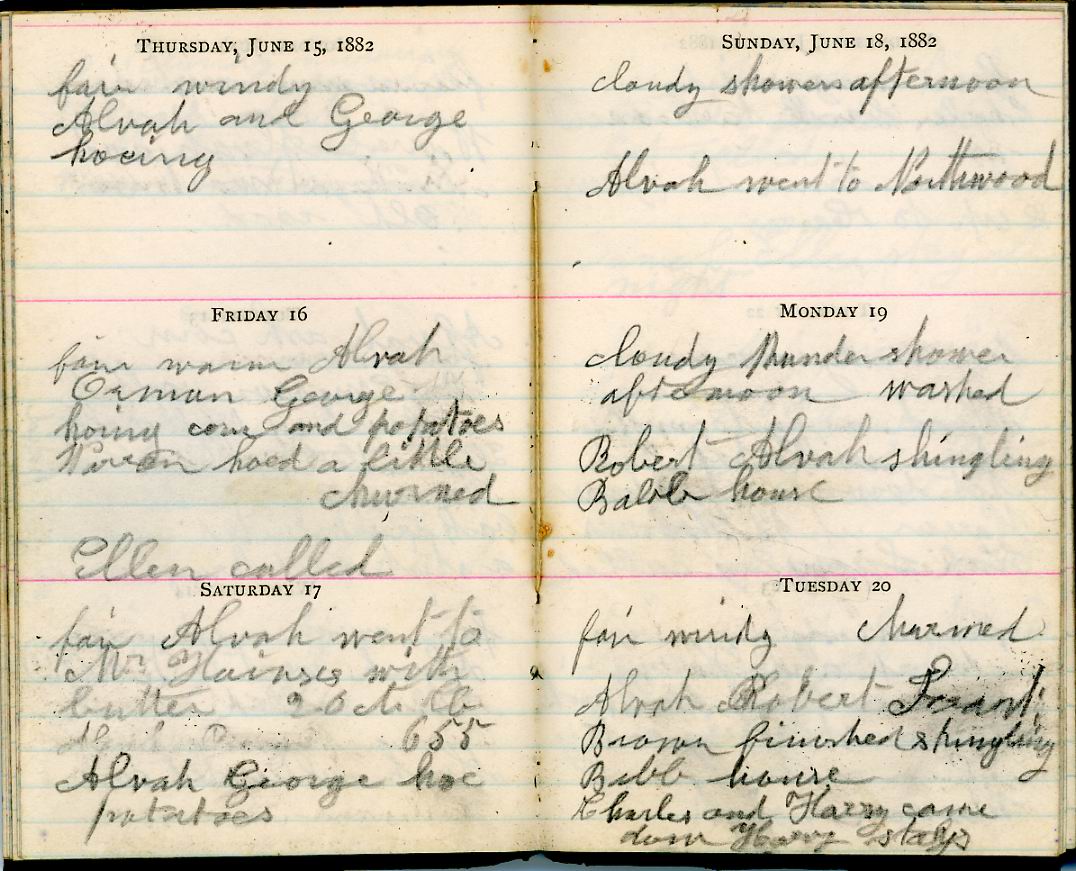 THURSDAY, JUNE 15, 1882
fair windy
Alvah and George
hoeing
FRIDAY 16
fair warm Alvah
Orman George
hoing corn and potatoes
hoed a little
churned
Ellen called
SATURDAY 17
fair Alvah went to
Mr Hainses with
butter 20 cts lb
655
Alvah George hoe
potatoes
SUNDAY, JUNE 18, 1882
cloudy showers afternoon
Alvah went to Northwood
MONDAY 19
cloudy thunder shower
afternoon washed
Robert Alvah shingling
house
TUESDAY 20
fair windy churned
Alvah Robert
Brown finished shingling
Bibb house
Charles and Harry came
down Harry stays